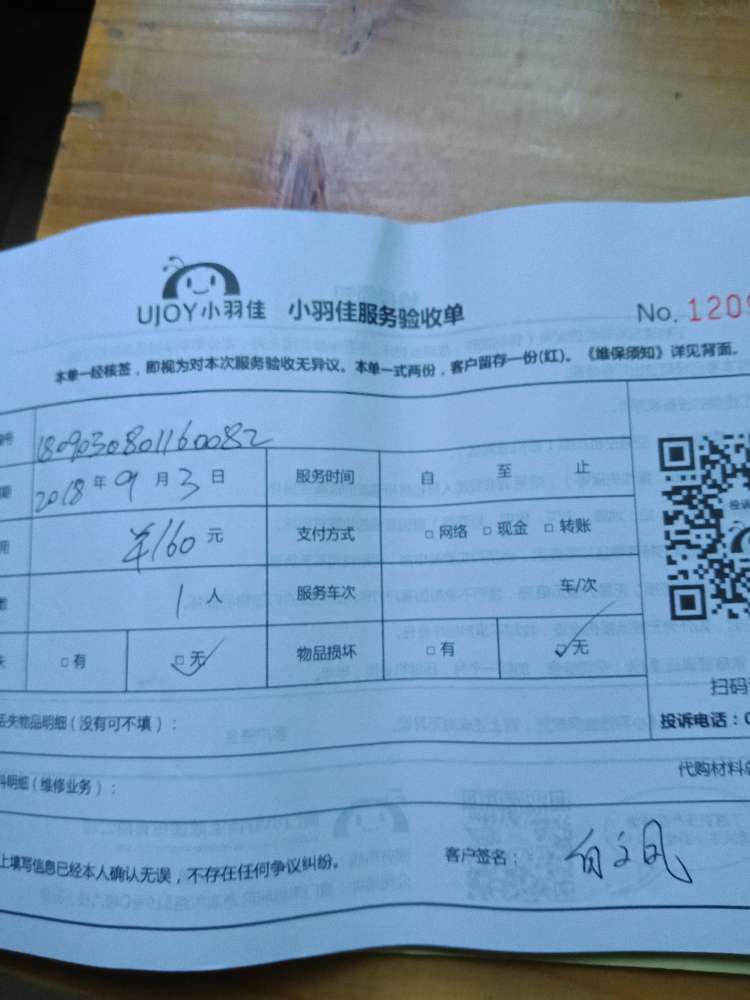 UJOY小羽佳 小羽佳服务验收单 No. 1209
本单一经核签，即视为对本次服务验收无异议。本单一式两份，客户留存一份(红)。《维保须知》详见背面。
号 1809030801160082
期 2018 年 9 月 3 日 服务时间 自 至 止
用 ¥160 元 支付方式 □网络 □现金 □转账
1 人 服务车次 车/次
失 □有 □无 物品损坏 □有 □无
投诉
扫码
丢失物品明细（没有可不填）： 投诉电话：0
料明细（维修业务）： 代购材料总
上填写信息已经本人确认无误，不存在任何争议纠纷。 客户签名：